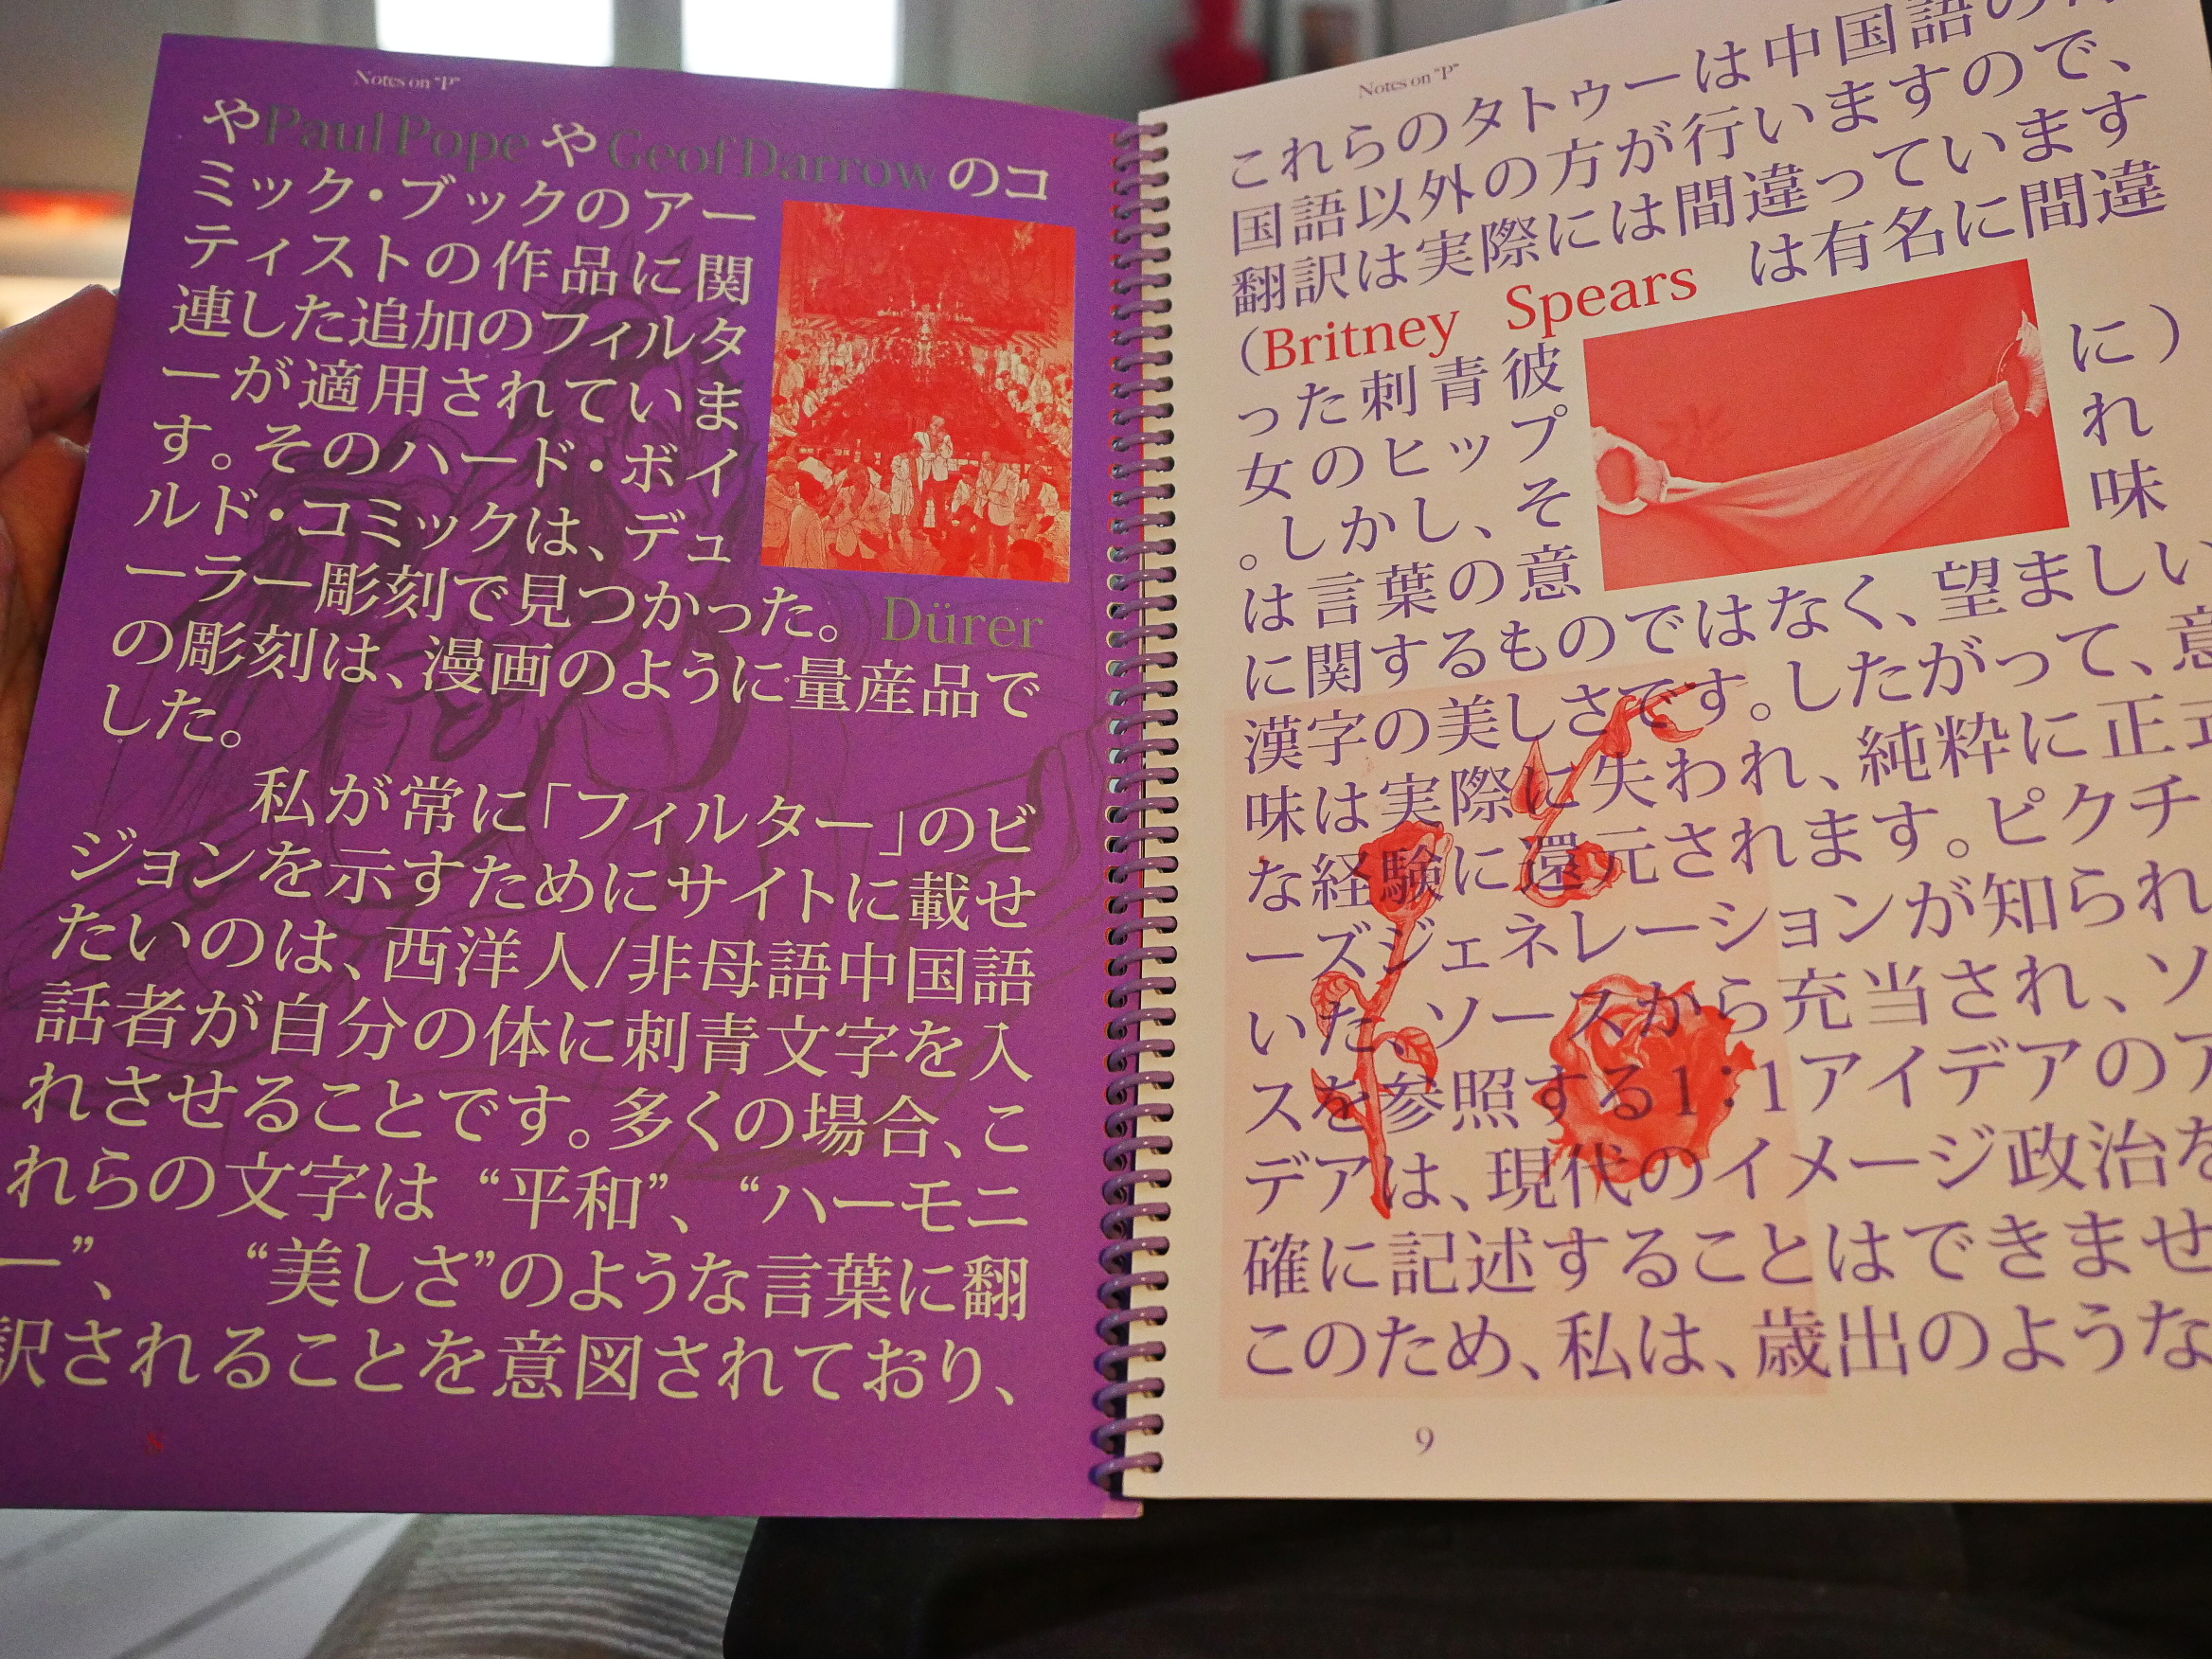 Notes on "P"
やPaul PopeやGeof Darrowのコ
ミック・ブックのアー
ティストの作品に関
連した追加のフィルタ
ーが適用されていま
す。そのハード・ボイ
ルド・コミックは、デュ
ーラー彫刻で見つかった。Dürer
の彫刻は、漫画のように量産品で
した。
私が常に「フィルター」のビ
ジョンを示すためにサイトに載せ
たいのは、西洋人/非母語中国語
話者が自分の体に刺青文字を入
れさせることです。多くの場合、こ
れらの文字は “平和”、“ハーモニ
ー”、 “美しさ”のような言葉に翻
訳されることを意図されており、
8
Notes on "P"
これらのタトゥーは中国語の
国語以外の方が行いますので、
翻訳は実際には間違っています
(Britney Spears は有名に間違
った刺青彼 に)
女のヒップ れ
。しかし、そ 味
は言葉の意
に関するものではなく、望ましい
漢字の美しさです。したがって、意
味は実際に失われ、純粋に正式
な経験に還元されます。ピクチ
ーズジェネレーションが知られ
いた、ソースから充当され、ソ
スを参照する1:1アイデアのア
デアは、現代のイメージ政治を
確に記述することはできませ
このため、私は、歳出のような
9